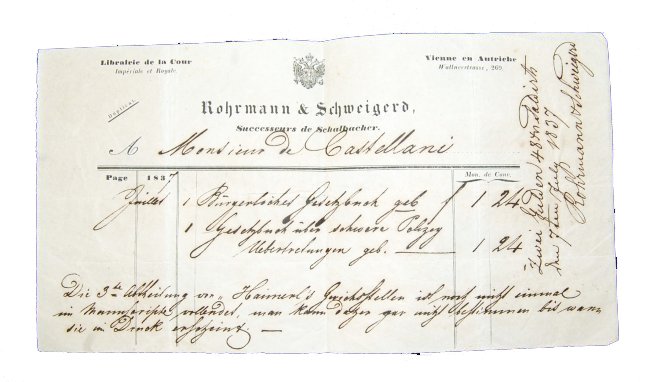 Librairie de la Cour
Impériale et Royale.
Vienne en Autriche
Wallnerstrasse, 269.
Duplicat.
Rohrmann & Schweigerd,
Successeurs de Schalbacher.
A Monsieur de Castellani
Page 1837
Mon. de Conv.
Juillet 1 Bürgerliches Gesetzbuch geb f 1 24
1 Gesetzbuch über schwere Polizey
Uebertretungen geb. 1 24
Die 3te Abtheilung von Gerichtsstellen ist noch nicht einmal
im Manuscripte vollendet, man kann daher gar nicht bestimmen bis wan
sie im Druck erscheint. —
Zwei Gulden 48 Xr
den 7ten July 1837
Rohrmann & Schweigerd